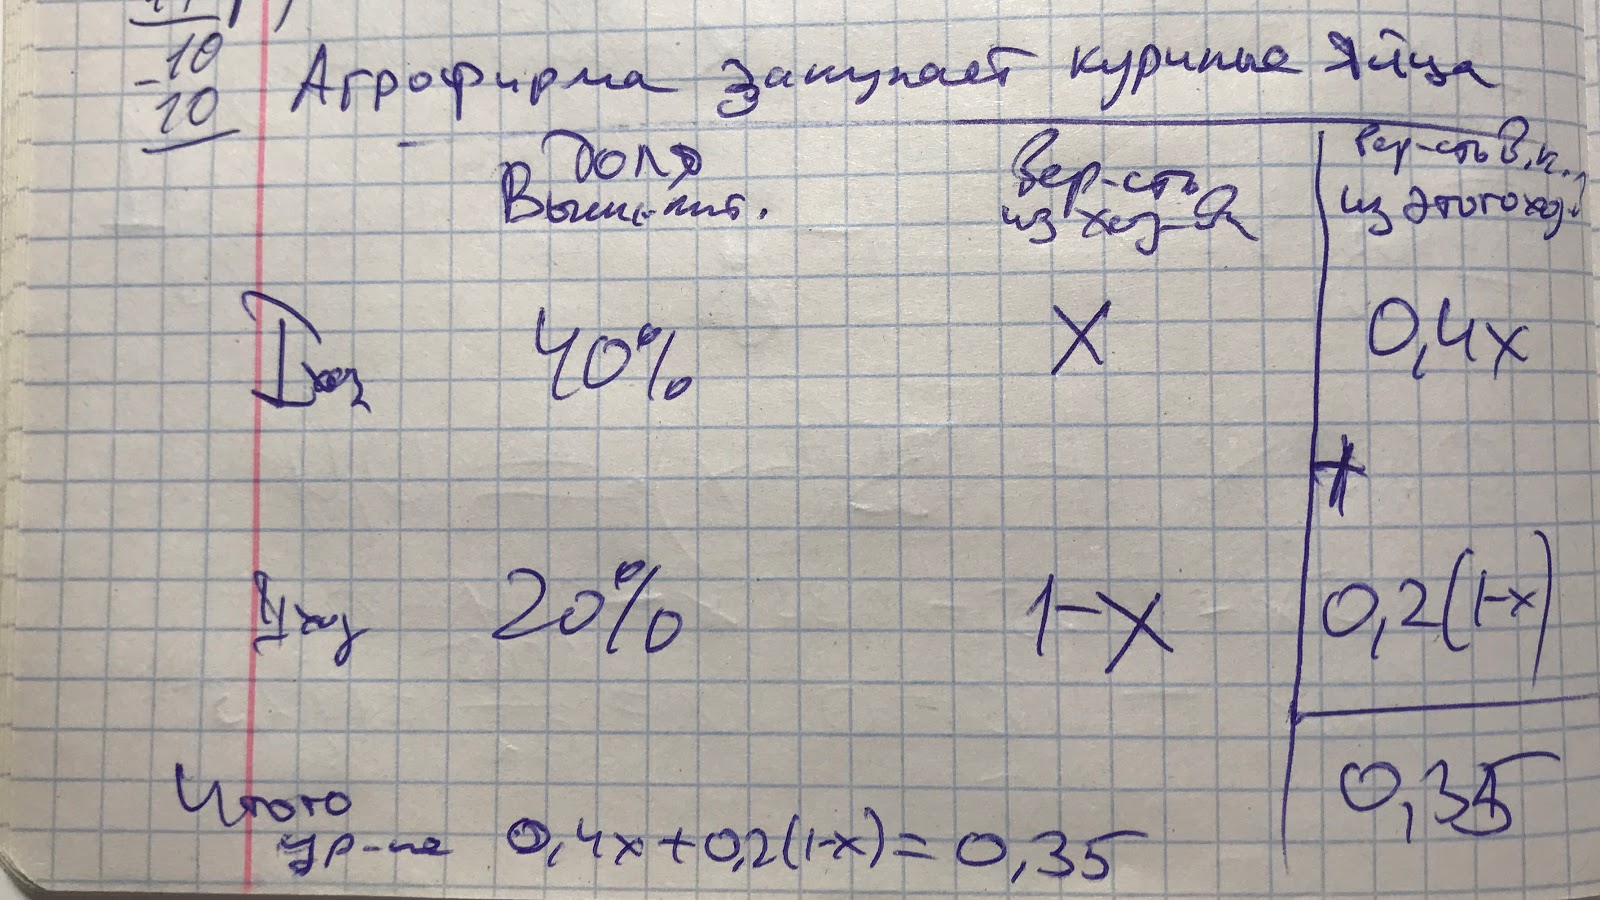 10
-
10
Агрофирма закупает куриные яйца
Доля
Высш.кат.
Вер-сть
из хоз-ва
Вер-сть В.к.
из этого хоз.
I хоз
40%
X
0,4x
+
II хоз
20%
1-X
0,2(1-x)
0,35
Итого
ур-ие 0,4x+0,2(1-x)=0,35